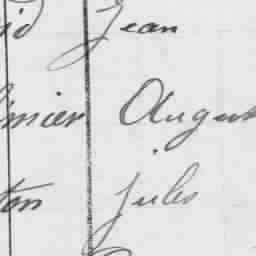 id Jean
imier August
ton Jules